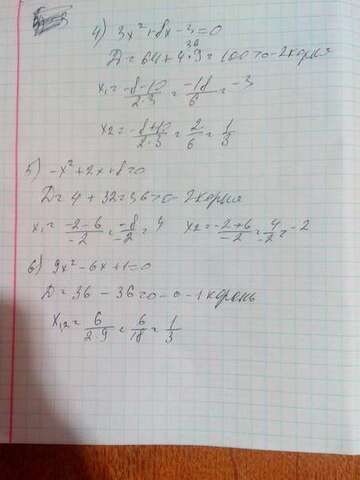 4) 3x² + 8x - 3 = 0
D = 64 + 4·9 = 100 > 0 - 2 корня
x₁ = -8-10/2·3 = -18/6 = -3
x₂ = -8+10/2·3 = 2/6 = 1/3
5) -x² + 2x + 8 = 0
D = 4 + 32 = 36 > 0 - 2 корня
x₁ = -2-6/-2 = -8/-2 = 4 x₂ = -2+6/-2 = 4/-2 = -2
6) 9x² - 6x + 1 = 0
D = 36 - 36 = 0 - 1 корень
x₁,₂ = 6/2·9 = 6/18 = 1/3